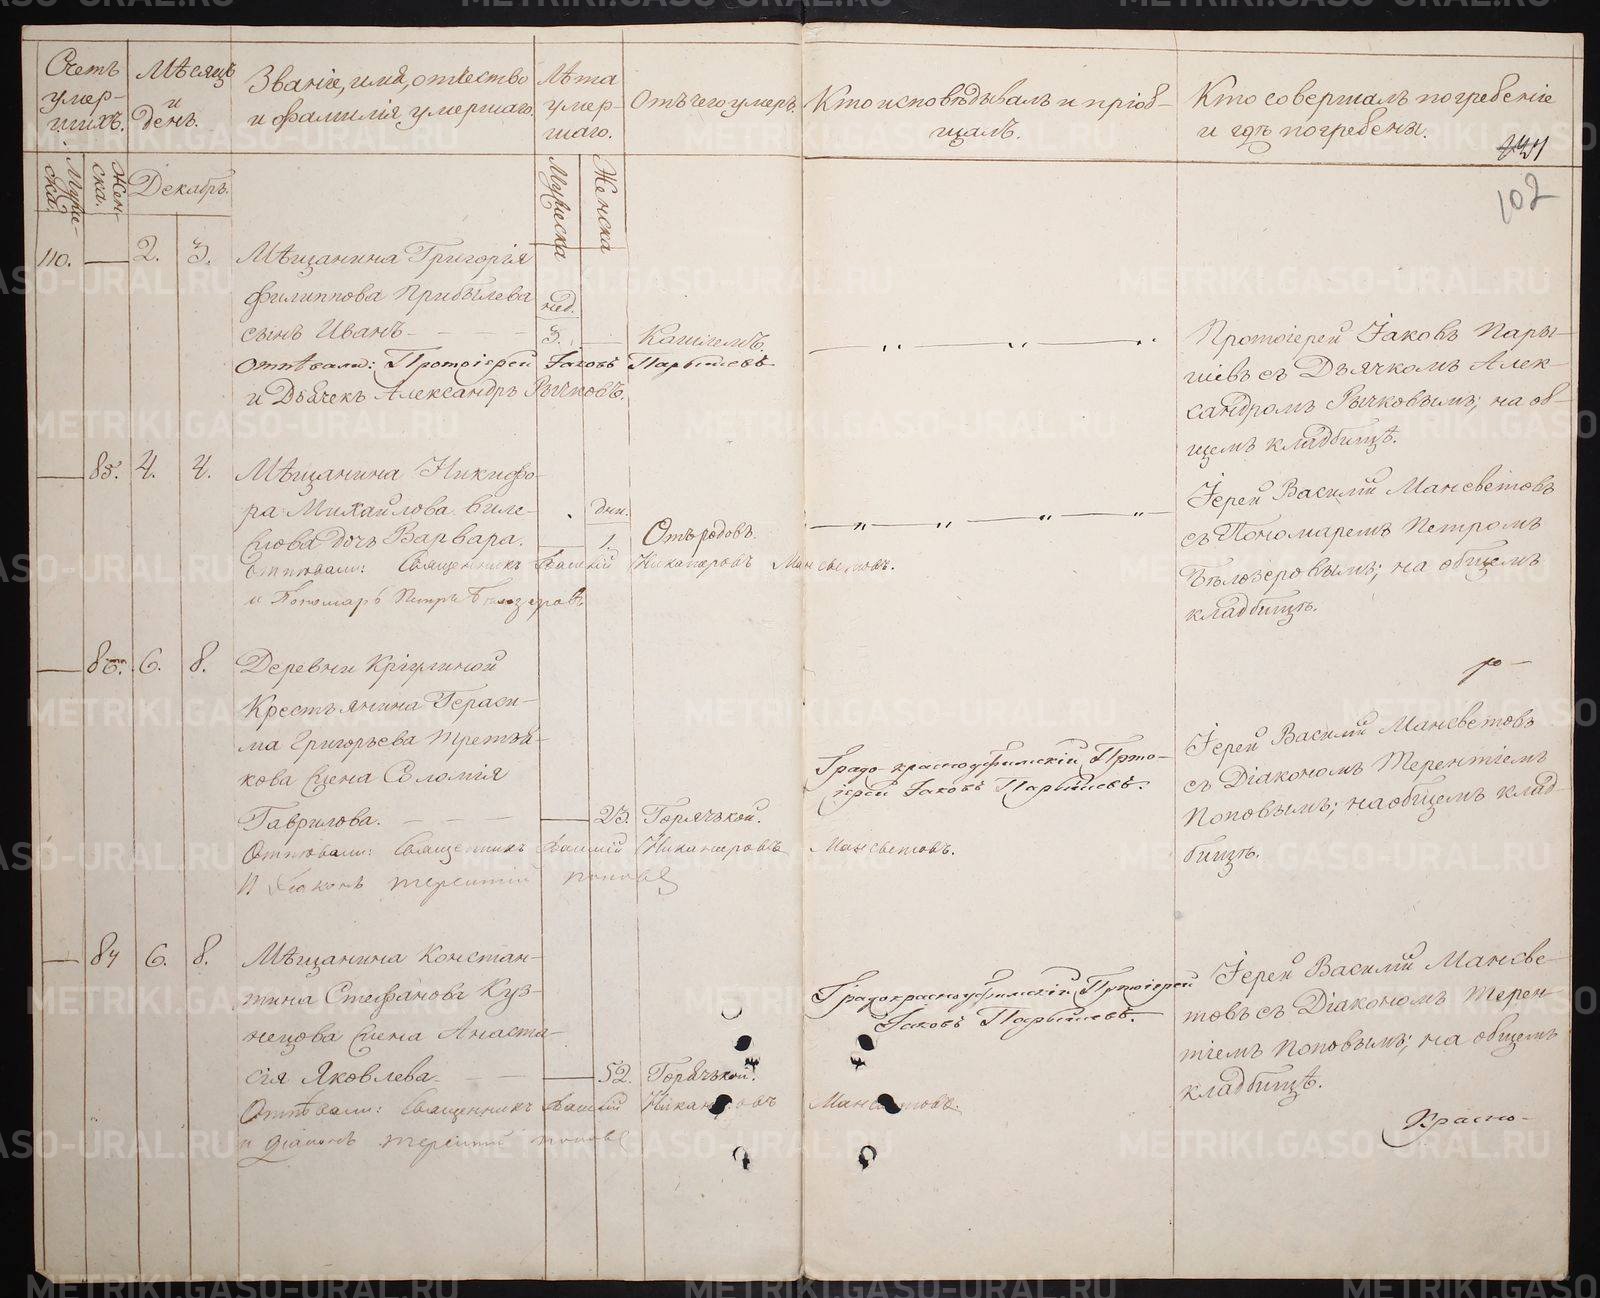 Счетъ умер-шихъ.
Мѣсяцъ и день.
Званіе, имя, отчество и фамилія умершаго.
Лѣта умер-шаго.
Отъ чего умеръ.
Кто исповѣдывалъ и пріоб-щалъ.
Кто совершалъ погребеніе и гдѣ погребены.
102
Муже-ска.
Жен-ска.
Декабрь.
Мужеска
Женска
110. — 2. 3.
Мѣщанина Григорія
Филиппова Прибылева
сынъ Иванъ
нед.
3.
Кашлемъ.
Отпѣвали: Протоіерей Іаковъ Парышевъ
и Дьячекъ Александръ Рычковъ.
Протоіерей Іаковъ Пары-
шевъ съ Дьячкомъ Алек-
сандромъ Рычковымъ; на об-
щемъ кладбищѣ.
— 85. 4. 4.
Мѣщанина Никифо-
ра Михайлова
дочь Варвара.
дни.
1.
Отъ родовъ.
Отпѣвали: Священникъ Василій Никаноровъ Мансветовъ.
и Пономарь Петръ Бѣлозеровъ
Іерей Василій Мансветовъ
съ Пономаремъ Петромъ
Бѣлозеровымъ; на общемъ
кладбищѣ.
— 86. 6. 8.
Деревни Криулиной
Крестьянина Гераси-
ма Григорьева Третья-
кова жена Соломія
Гаврилова.
23.
Горячкой.
Отпѣвали: Священникъ Василій Никаноровъ Мансветовъ.
и Діаконъ Терентій Поповъ
Градо-красноуфимскій Прото-
іерей Іаковъ Парышевъ.
Іерей Василій Мансветовъ
съ Діакономъ Терентіемъ
Поповымъ; на общемъ клад-
бищѣ.
— 87 6. 8.
Мѣщанина Констан-
тина Стефанова Куз-
нецова жена Анаста-
сія Яковлева
52.
Горячкой.
Отпѣвали: Священникъ Василій Никаноровъ Мансветовъ.
и діаконъ Терентій Поповъ
Градокрасноуфимскій Протоіерей
Іаковъ Парышевъ.
Іерей Василій Мансве-
товъ съ Діакономъ Терен-
тіемъ Поповымъ; на общемъ
кладбищѣ.
Красно-
METRIKI.GASO-URAL.RU